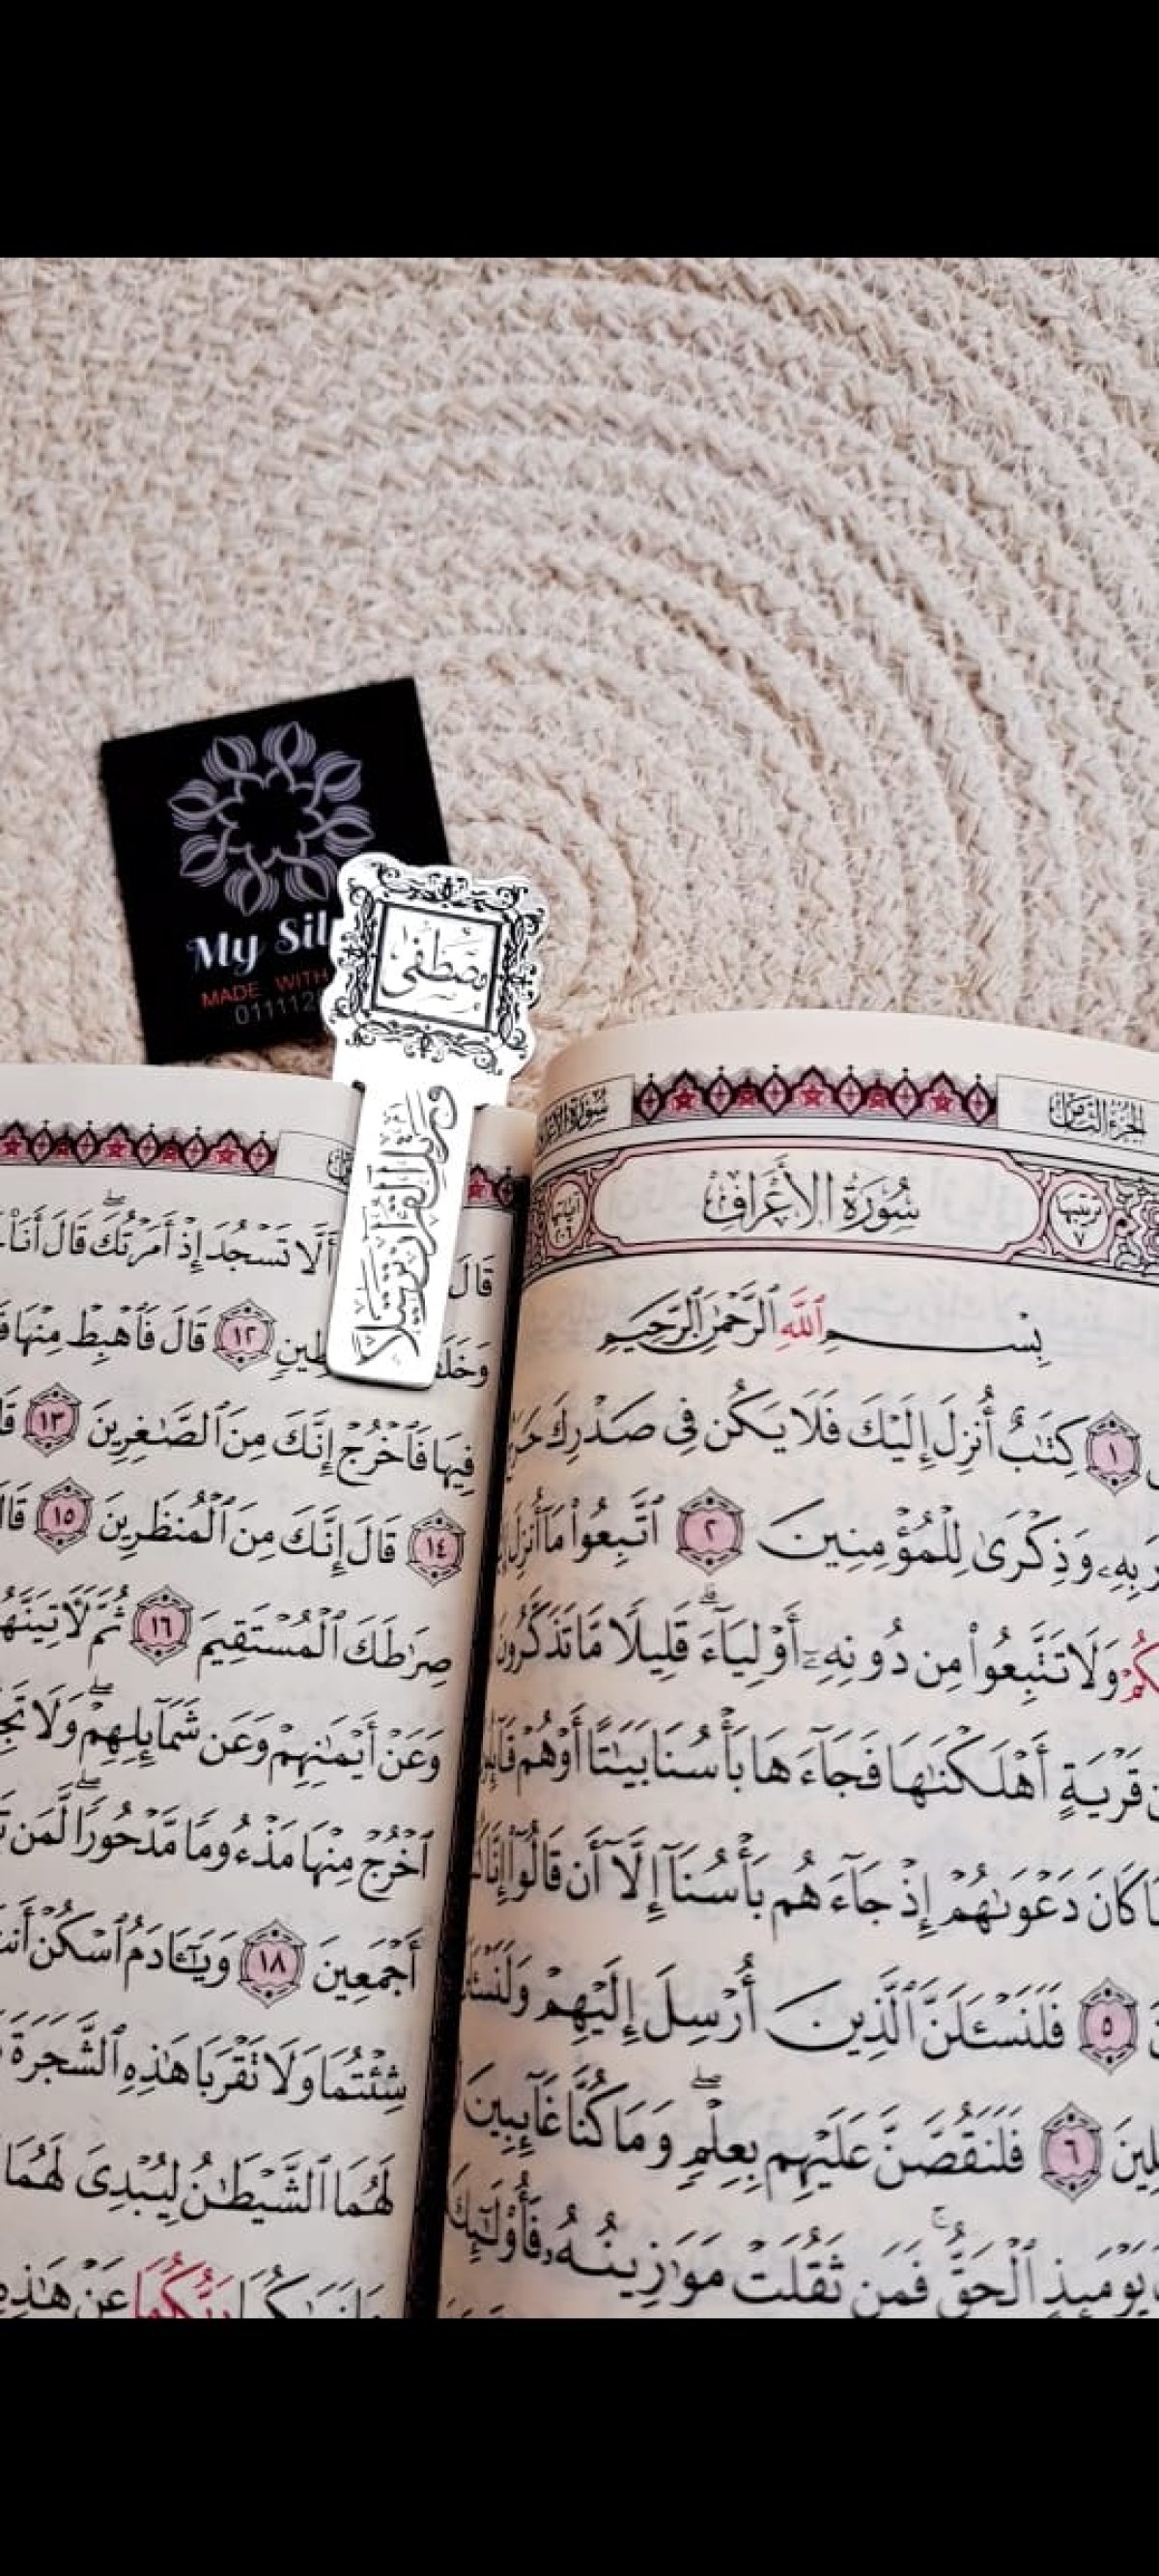 My Sil
MADE WITH
011112
مصطفى
ورتل القرآن ترتيلا
الجزء الثامن
سُورَةُ الأَعْرَاف
ترتيبها
٧
سُورَةُ الأَعْرَافِ
آياتها
٢٠٦
بِسْمِ ٱللَّهِ ٱلرَّحْمَٰنِ ٱلرَّحِيمِ
١ كِتَٰبٌ أُنزِلَ إِلَيْكَ فَلَا يَكُن فِى صَدْرِكَ
بِهِۦ وَذِكْرَىٰ لِلْمُؤْمِنِينَ ٢ ٱتَّبِعُوا۟ مَآ أُنزِلَ
وَلَا تَتَّبِعُوا۟ مِن دُونِهِۦٓ أَوْلِيَآءَ ۗ قَلِيلًا مَّا تَذَكَّرُونَ
قَرْيَةٍ أَهْلَكْنَٰهَا فَجَآءَهَا بَأْسُنَا بَيَٰتًا أَوْ هُمْ
كَانَ دَعْوَىٰهُمْ إِذْ جَآءَهُم بَأْسُنَآ إِلَّآ أَن قَالُوٓا۟ إِنَّا
٥ فَلَنَسْـَٔلَنَّ ٱلَّذِينَ أُرْسِلَ إِلَيْهِمْ
٦ فَلَنَقُصَّنَّ عَلَيْهِم بِعِلْمٍ ۖ وَمَا كُنَّا غَآئِبِينَ
يَوْمَئِذٍ ٱلْحَقُّ ۚ فَمَن ثَقُلَتْ مَوَٰزِينُهُۥ فَأُو۟لَٰٓئِكَ
قَالَ أَلَّا تَسْجُدَ إِذْ أَمَرْتُكَ ۖ قَالَ أَنَا۠
١٢ قَالَ فَٱهْبِطْ مِنْهَا
فِيهَا فَٱخْرُجْ إِنَّكَ مِنَ ٱلصَّٰغِرِينَ ١٣
١٤ قَالَ إِنَّكَ مِنَ ٱلْمُنظَرِينَ ١٥
صِرَٰطَكَ ٱلْمُسْتَقِيمَ ١٦ ثُمَّ
وَعَنْ أَيْمَٰنِهِمْ وَعَن شَمَآئِلِهِمْ ۖ وَلَا
ٱخْرُجْ مِنْهَا مَذْءُومًا مَّدْحُورًا ۖ لَّمَن
أَجْمَعِينَ ١٨ وَيَٰٓـَٔادَمُ ٱسْكُنْ
شِئْتُمَا وَلَا تَقْرَبَا هَٰذِهِ ٱلشَّجَرَةَ
لَهُمَا ٱلشَّيْطَٰنُ لِيُبْدِىَ لَهُمَا
رَبُّكُمَا عَنْ هَٰذِهِ